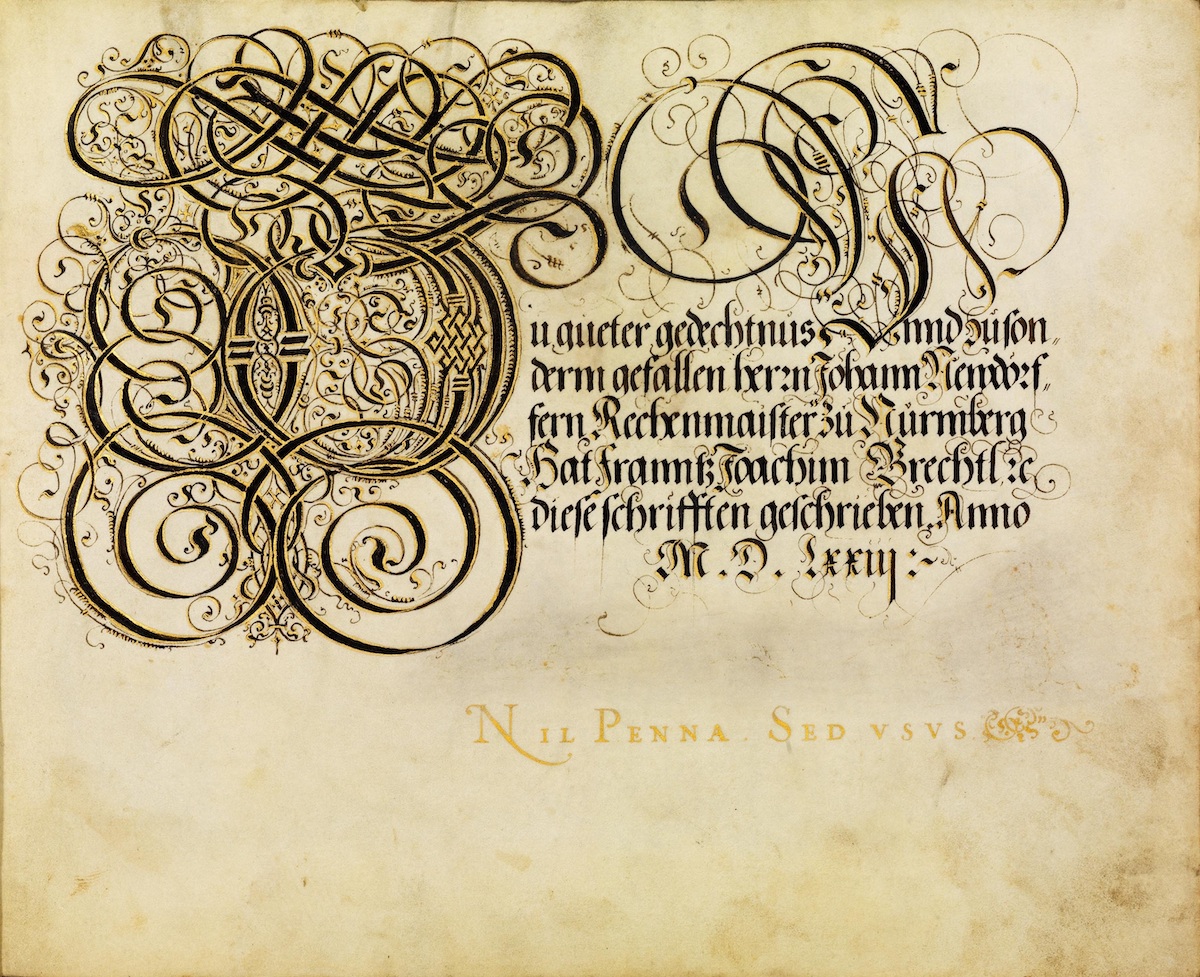 Zu gueter gedechtnus Vnnd zu son„
derm gefallen herrn Johann Newdörf„
fern Rechenmaister zu Nürmberg
Hat Franntz Joachim Brechtl ꝛc
diese schrifften geschrieben, Anno
M. D. Lxxiij :~
NIL PENNA. SED VSVS